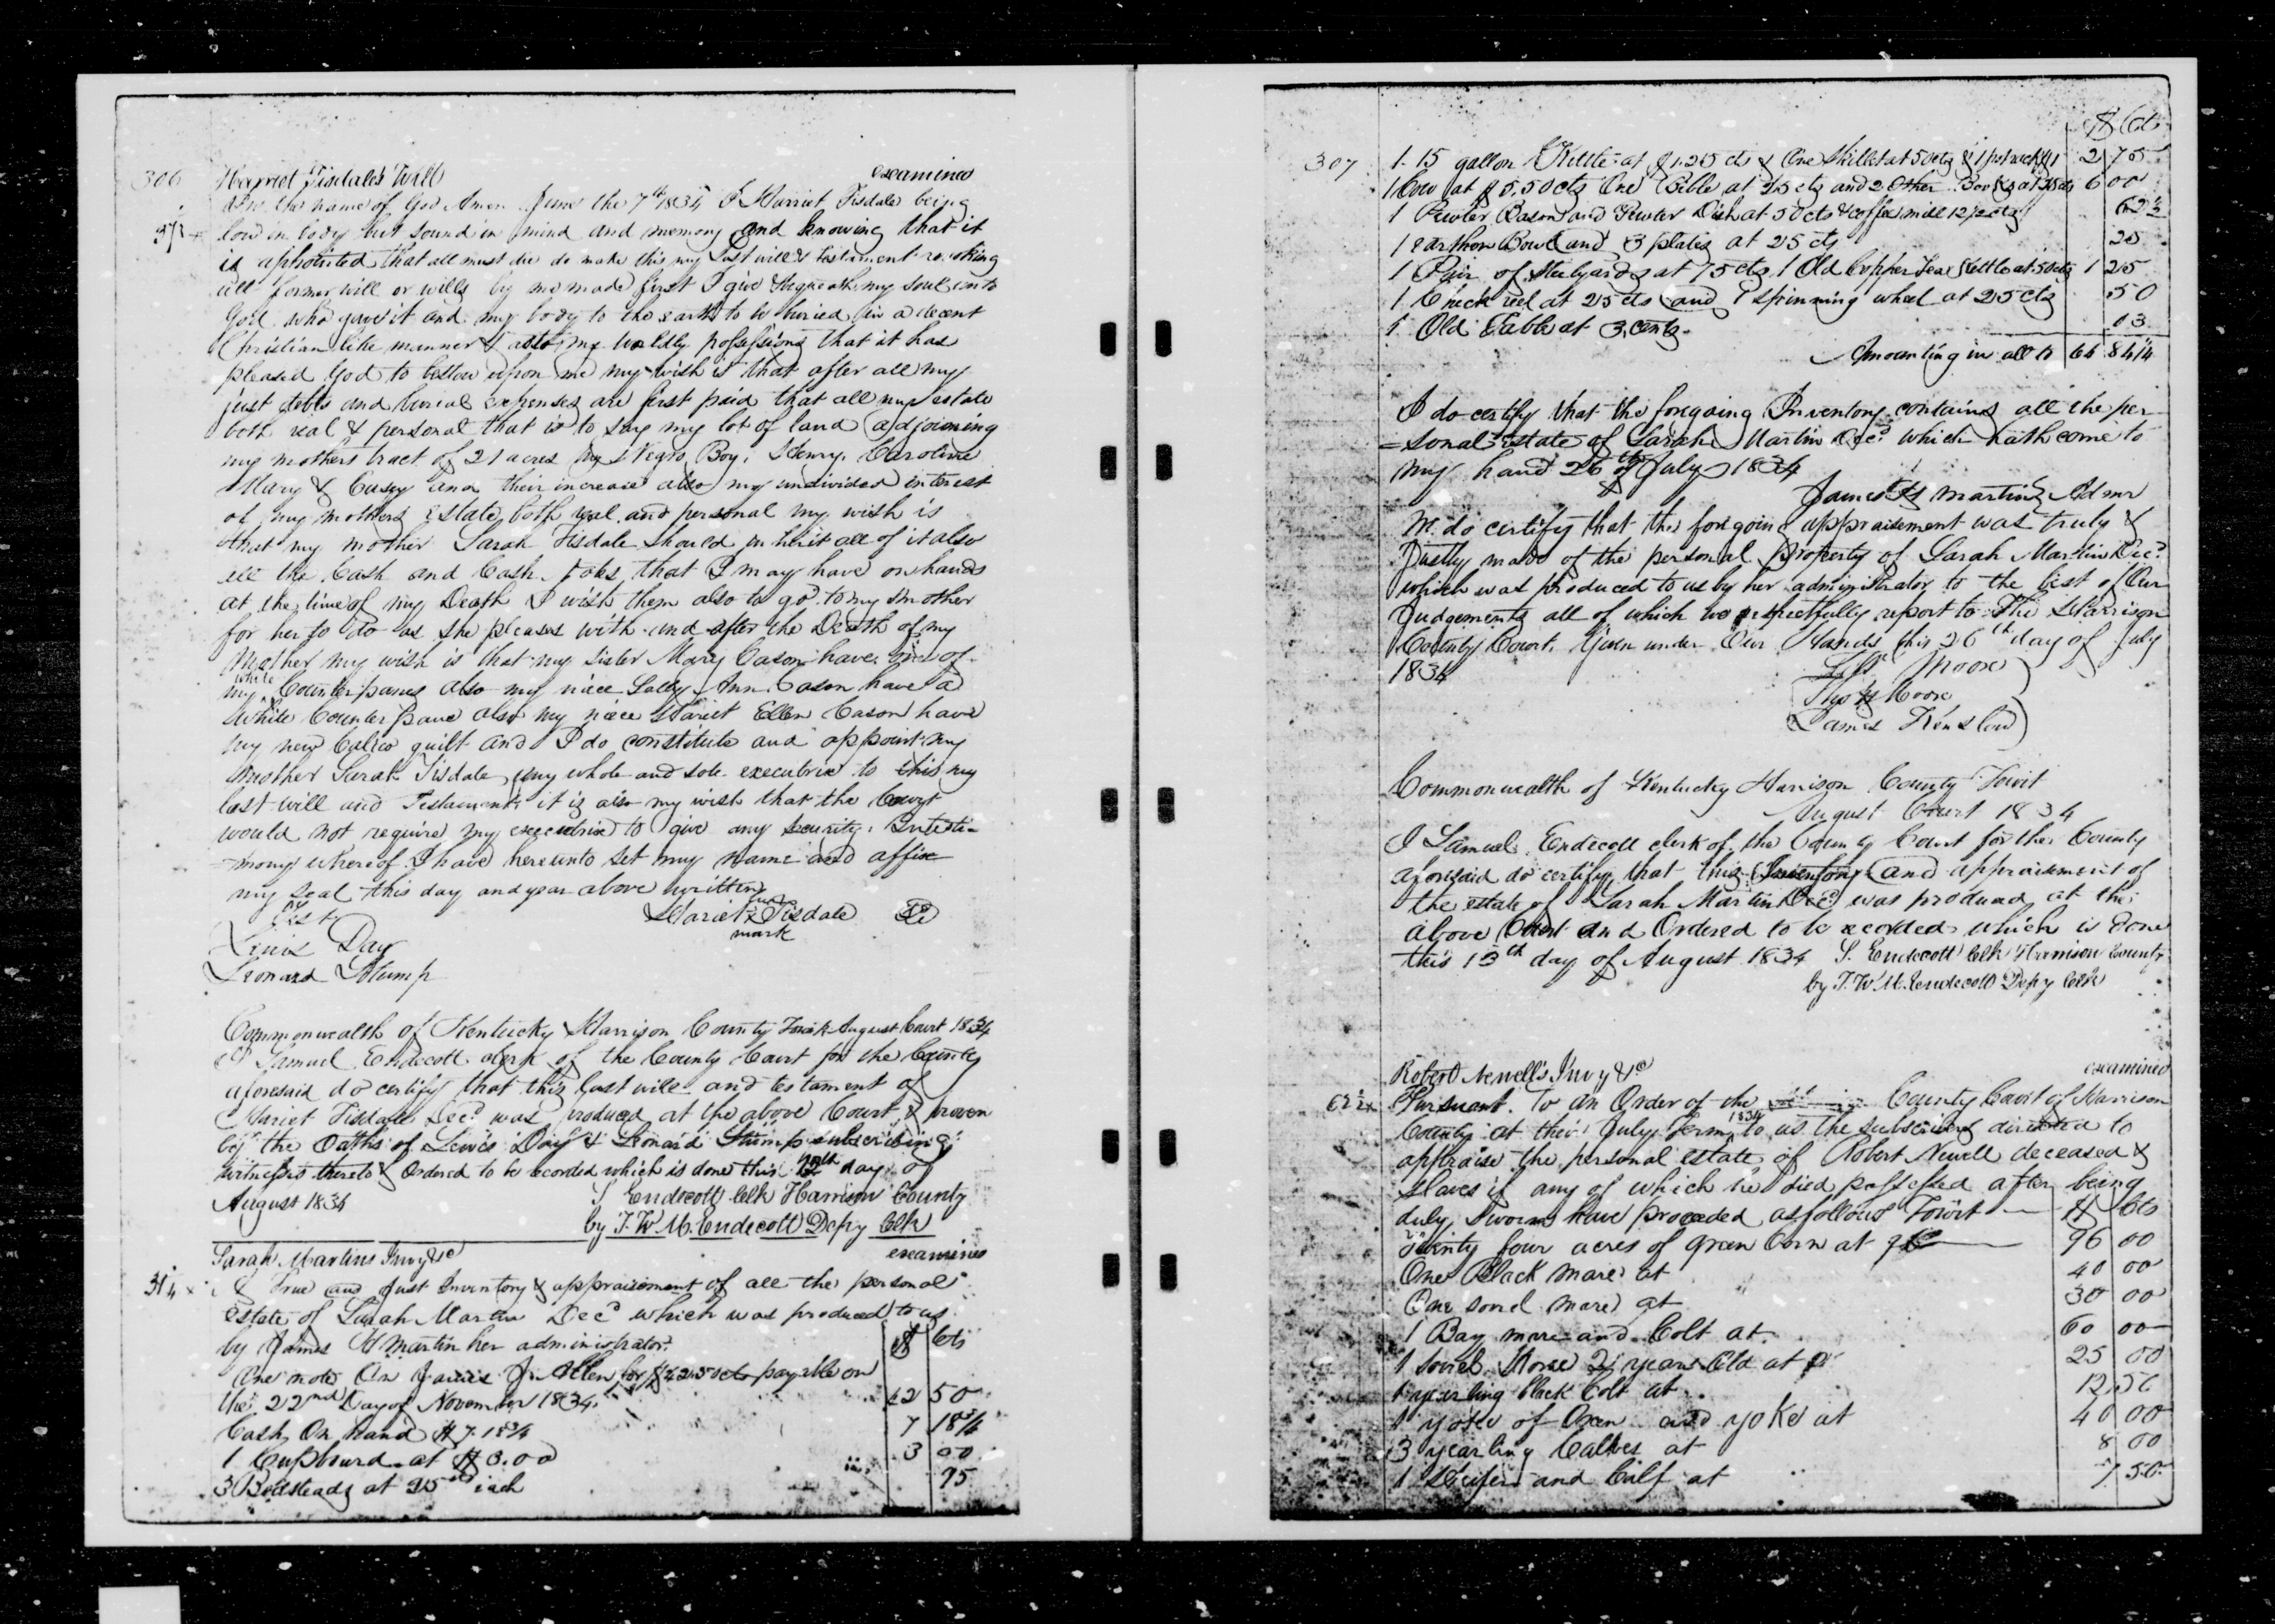 306
Harriet Tisdales Will
examined
In the name of God Amen. June the 7th 1834 I Harriet Tisdale being
low in body but sound in mind and memory and knowing that it
is appointed that all must die do make this my Last will & testament revoking
all former will or wills by me made first I give & bequeath my soul unto
God who gave it and my body to the earth to be buried in a decent
Christian like manner & also my worldly possessions that it has
pleased God to bestow upon me my wish is that after all my
just debts and burial expenses are first paid that all my estate
both real & personal that is to say my lot of land adjoining
my mothers tract of 21 acres my Negro Boy, Henry, Caroline
Mary & Casey and their increase also my undivided interest
of my mothers estate both real and personal my wish is
that my mother Sarah Tisdale should inherit all of it also
all the Cash and Cash notes that I may have on hands
at the time of my Death I wish them also to go to my mother
for her to do as she pleases with and after the Death of my
Mother my wish is that my sister Mary Cason have one of
my white Counterpanes also my niece Sally Ann Cason have a
White Counter Pane also my niece Hariet Ellen Cason have
my new Calico quilt and I do constitute and appoint my
mother Sarah Tisdale my whole and sole executrix to this my
last will and Testament it is also my wish that the Court
would not require my executrix to give any security. In testi-
mony whereof I have hereunto set my name and affix
my seal this day and year above written
Test
Hariet her x mark Tisdale
Lewis Day
Leonard Stump
Commonwealth of Kentucky Harrison County Towit August Court 1834
I Samuel Endecott clerk of the County Court for the County
aforesaid do certify that this last will and testament of
Hariet Tisdale Decd was produced at the above Court & proven
by the Oaths of Lewis Day & Leonard Stump subscribing
witnesses thereto & Ordered to be recorded which is done this day of
August 1834
S Endecott Clk Harrison County
by T. W. M. Endecott Depy Clk
Sarah Martins Invy &c
examined
A True and Just Inventory & appraisement of all the personal
estate of Sarah Martin Decd which was produced to us
by James H Martin her administrator.
$ Cts
One note On James J. Allen for $42.50 cts payable on
the 22nd Day of November 1834. 42 50
Cash On hand $7.18¾ 7 18¾
1 Cupboard at $3.00 3 00
3 Bedsteads at 25 cts each 75
307
$ Cts
1. 15 gallon Kettle at $1.25 cts & One Skillet at 50 cts & 1 pot rack $1 2 75
1 Cow at $5.50 cts One Bible at 25 cts and 2 Other Books at 25 cts 6 00
1 Pewter Bason and Pewter Dish at 50 cts & coffee mill 12½ cts 62½
1 earthen Bowl and 3 plates at 25 cts 25
1 Pair of Stilyards at 75 cts. 1 Old Copper Tea Kettle at 50 cts 1 25
1 Check reel at 25 cts and 1 spinning wheel at 25 cts 50
1 Old Table at 3 cents 03
Amounting in all to 64 84¼
I do certify that the foregoing Inventory contains all the per
=sonal Estate of Sarah Martin Decd which hath come to
my hand 26th of July 1834
James H Martin Admr
We do certify that the foregoing appraisement was truly &
Justly made of the personal property of Sarah Martin Decd
which was produced to us by her administrator to the best of Our
Judgements all of which we respectfully report to The Harrison
County Court. Given under Our Hands this 26th day of July
1834
Moore
Thos H Coon
James Henslow
Commonwealth of Kentucky Harrison County Towit
August Court 1834
I Samuel Endecott clerk of the County Court for the County
aforesaid do certify that this Inventory and appraisement of
the estate of Sarah Martin Decd was produced at the
above Court and Ordered to be recorded which is done
this 13th day of August 1834 S. Endecott Clk Harrison County
by T. W. M. Endecott Depy Clk
Robert Newell's Invy &c
examined
Pursuant. To an Order of the County Court of Harrison
County at their July Term 1834 to us the subscribers directed to
appraise the personal estate of Robert Newell deceased &
slaves if any of which he died possessed after being
duly sworn have proceeded as follows Towit $ Cts
Twenty four acres of green Corn at 96 00
One Black mare at 40 00
One sorrel mare at 30 00
1 Bay mare and Colt at 60 00
1 sorrel Horse 2 years Old at 25 00
1 yearling black Colt at 12 50
1 yoke of Oxen and yoke at 40 00
3 yearling Calves at 8 00
1 Heifer and Calf at 7 50